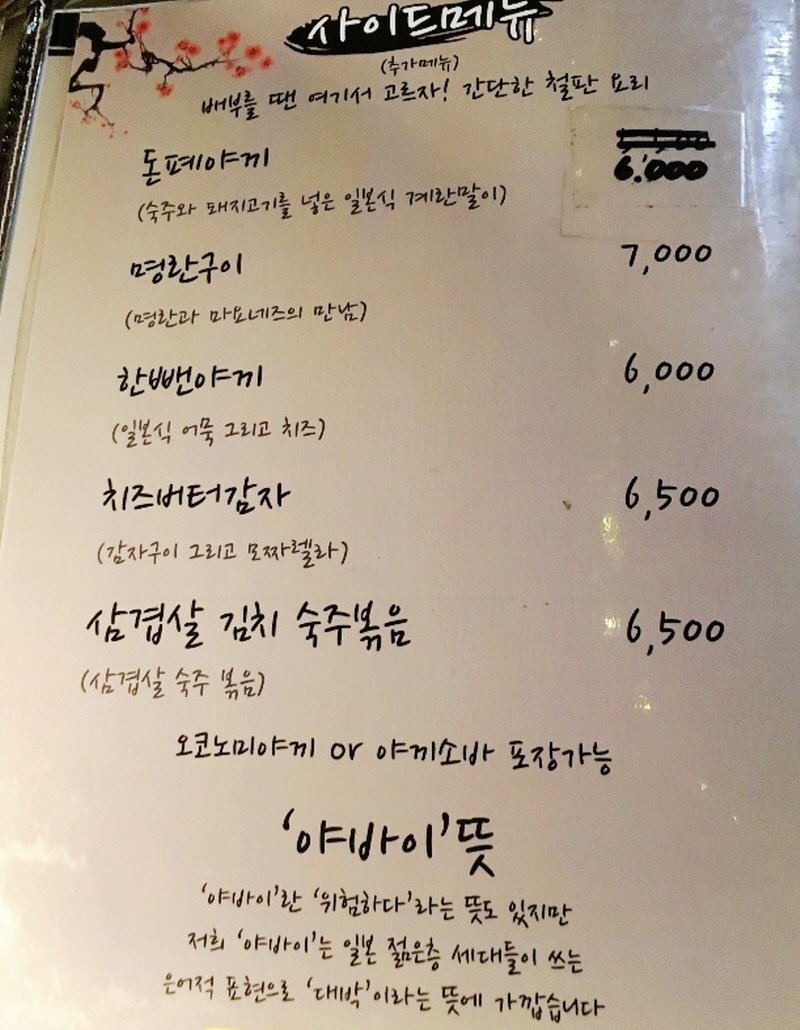 사이드메뉴
(추가메뉴)
배부를 땐 여기서 고르자! 간단한 철판 요리
돈페야끼 6.000
(숙주와 돼지고기를 넣은 일본식 계란말이)
명란구이 7,000
(명란과 마요네즈의 만남)
한뺀야끼 6,000
(일본식 어묵 그리고 치즈)
치즈버터감자 6,500
(감자구이 그리고 모짜렐라)
삼겹살 김치 숙주볶음 6,500
(삼겹살 숙주 볶음)
오코노미야끼 or 야끼소바 포장가능
'야바이' 뜻
'야바이'란 '위험하다'라는 뜻도 있지만
저희 '야바이'는 일본 젊은층 세대들이 쓰는
은어적 표현으로 '대박'이라는 뜻에 가깝습니다